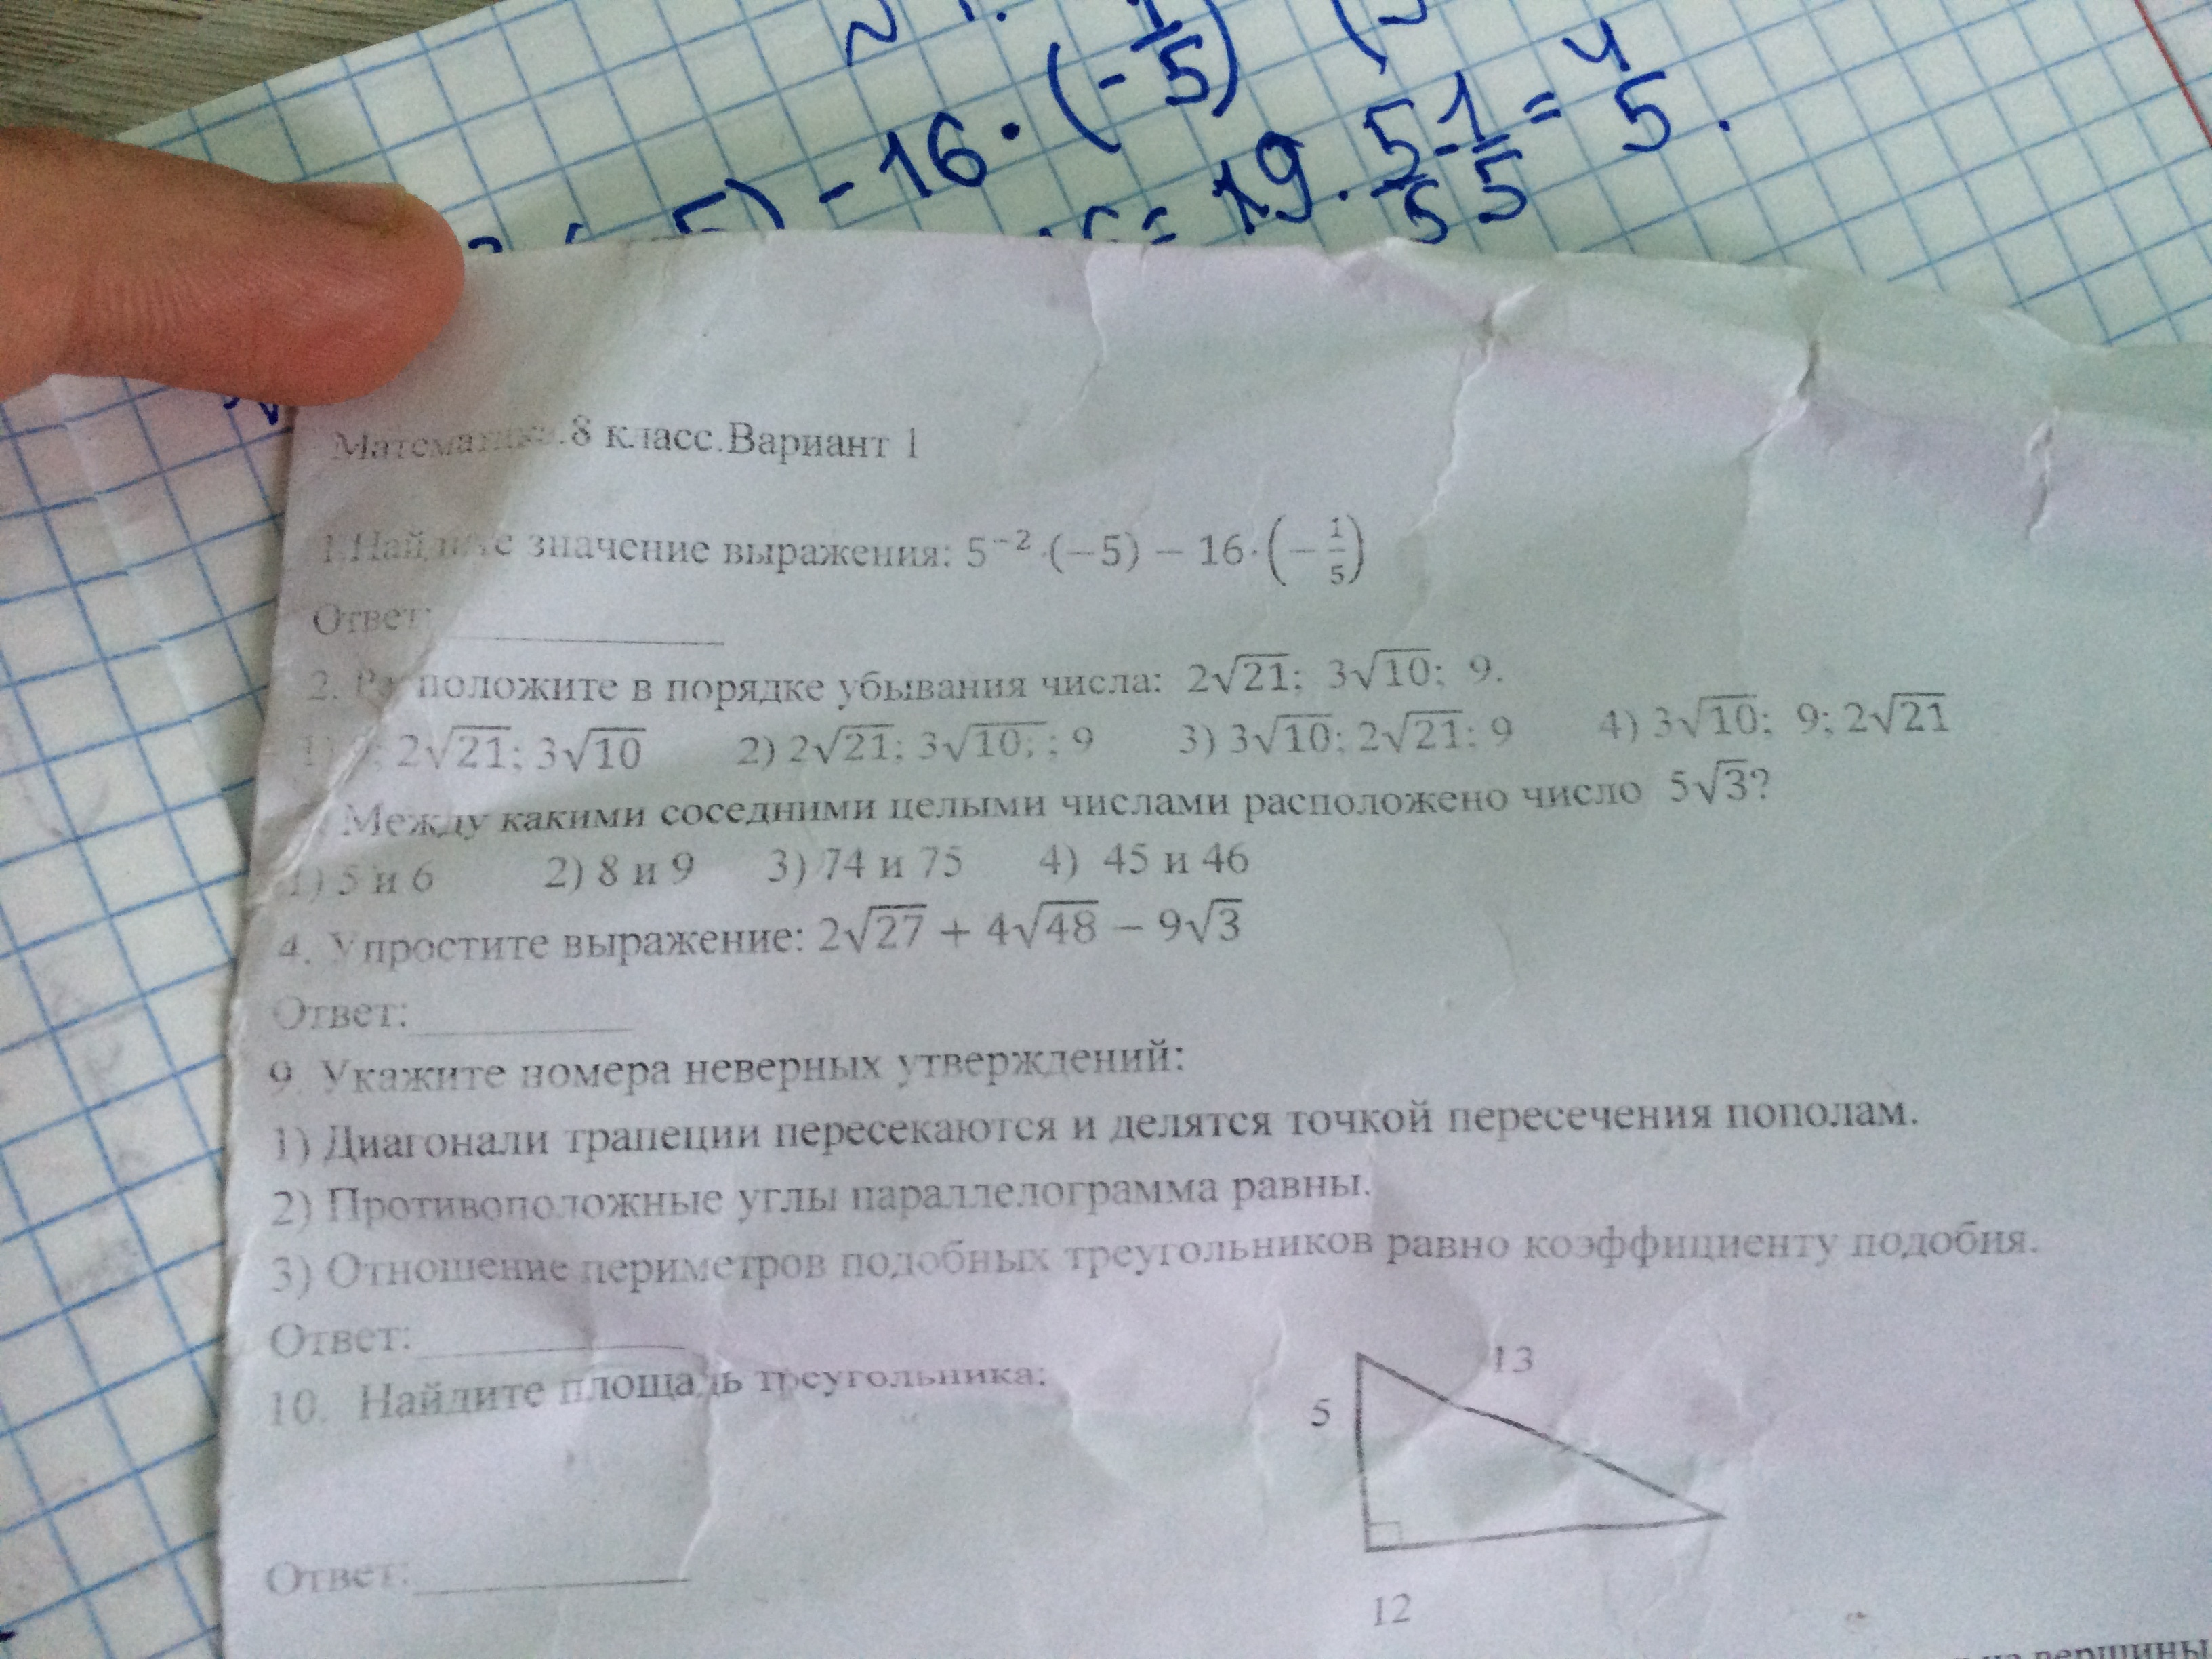 - 16 · (- 1/5)
19 · 5/5 - 1/5 = 4
5 .
Математика.8 класс.Вариант 1
1.Найдите значение выражения: 5⁻²·(−5) − 16·(−1/5)
Ответ:__________
2. Расположите в порядке убывания числа: 2√21; 3√10; 9.
1) ; 2√21; 3√10 2) 2√21; 3√10; ; 9 3) 3√10; 2√21; 9 4) 3√10; 9; 2√21
Между какими соседними целыми числами расположено число 5√3?
1) 5 и 6 2) 8 и 9 3) 74 и 75 4) 45 и 46
4. Упростите выражение: 2√27 + 4√48 − 9√3
Ответ:__________
9. Укажите номера неверных утверждений:
1) Диагонали трапеции пересекаются и делятся точкой пересечения пополам.
2) Противоположные углы параллелограмма равны.
3) Отношение периметров подобных треугольников равно коэффициенту подобия.
Ответ:__________
10. Найдите площадь треугольника:
13
5
12
Ответ:__________
вершины